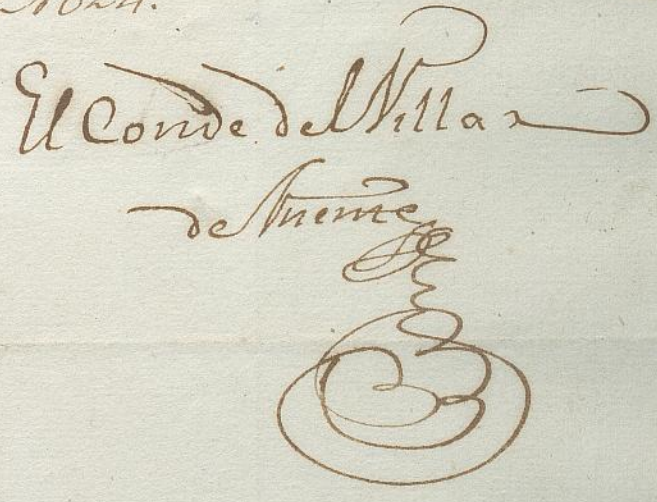 El Conde del Villar
de Fuente